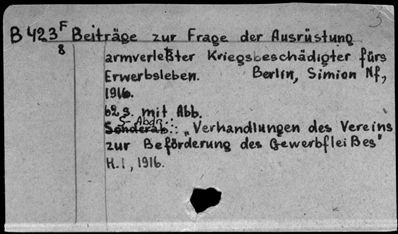 3
B 423 F Beiträge zur Frage der Ausrüstung
8 armverletzter Kriegsbeschädigter fürs
Erwerbsleben. Berlin, Simion Nf,
1916.
62 S. mit Abb.
S. Abdr.:
Sonderab.: „Verhandlungen des Vereins
zur Beförderung des Gewerbfleißes"
H. I, 1916.